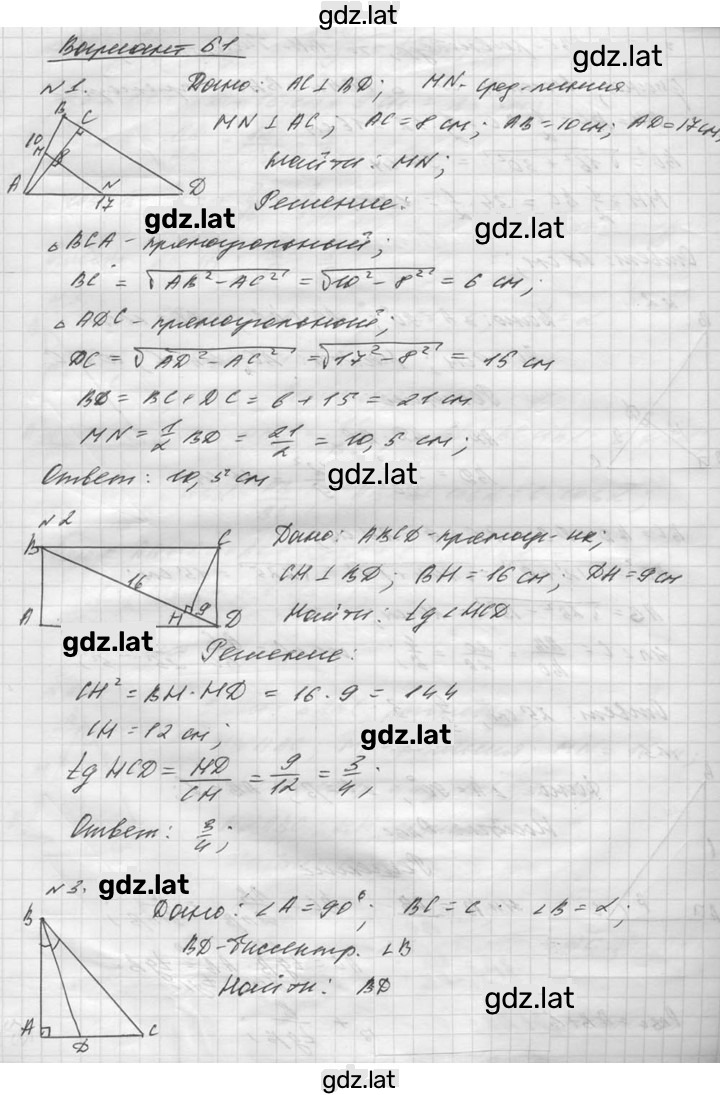 gdz.lat
Вариант Б1
gdz.lat
№1. Дано: AC⊥BD; MN-сред. линия
MN⊥AC; AC=8см; AB=10см; AD=17см;
Найти: MN;
B C
10
M
A N D
17
gdz.lat
Решение:
gdz.lat
△BCA-прямоугольный;
BC = √AB²-AC² = √10²-8² = 6 см;
△ADC-прямоугольный;
DC = √AD²-AC² = √17²-8² = 15 см
BD = BC+DC = 6+15 = 21 см
MN = 1/2 BD = 21/2 = 10,5 см;
Ответ: 10,5 см
gdz.lat
№2
Дано: ABCD-прямоуг-ик;
CH⊥BD; BH=16см; DH=9см
Найти: tg∠HCD
B C
16
A H 9 D
gdz.lat
Решение:
CH² = BH·HD = 16·9 = 144
CH = 12 см;
gdz.lat
tg HCD = HD/CH = 9/12 = 3/4;
Ответ: 3/4;
№3. gdz.lat
Дано: ∠A=90°; BC=c ∠B=α;
BD-биссектр. ∠B
Найти: BD
B
A D C
gdz.lat
gdz.lat